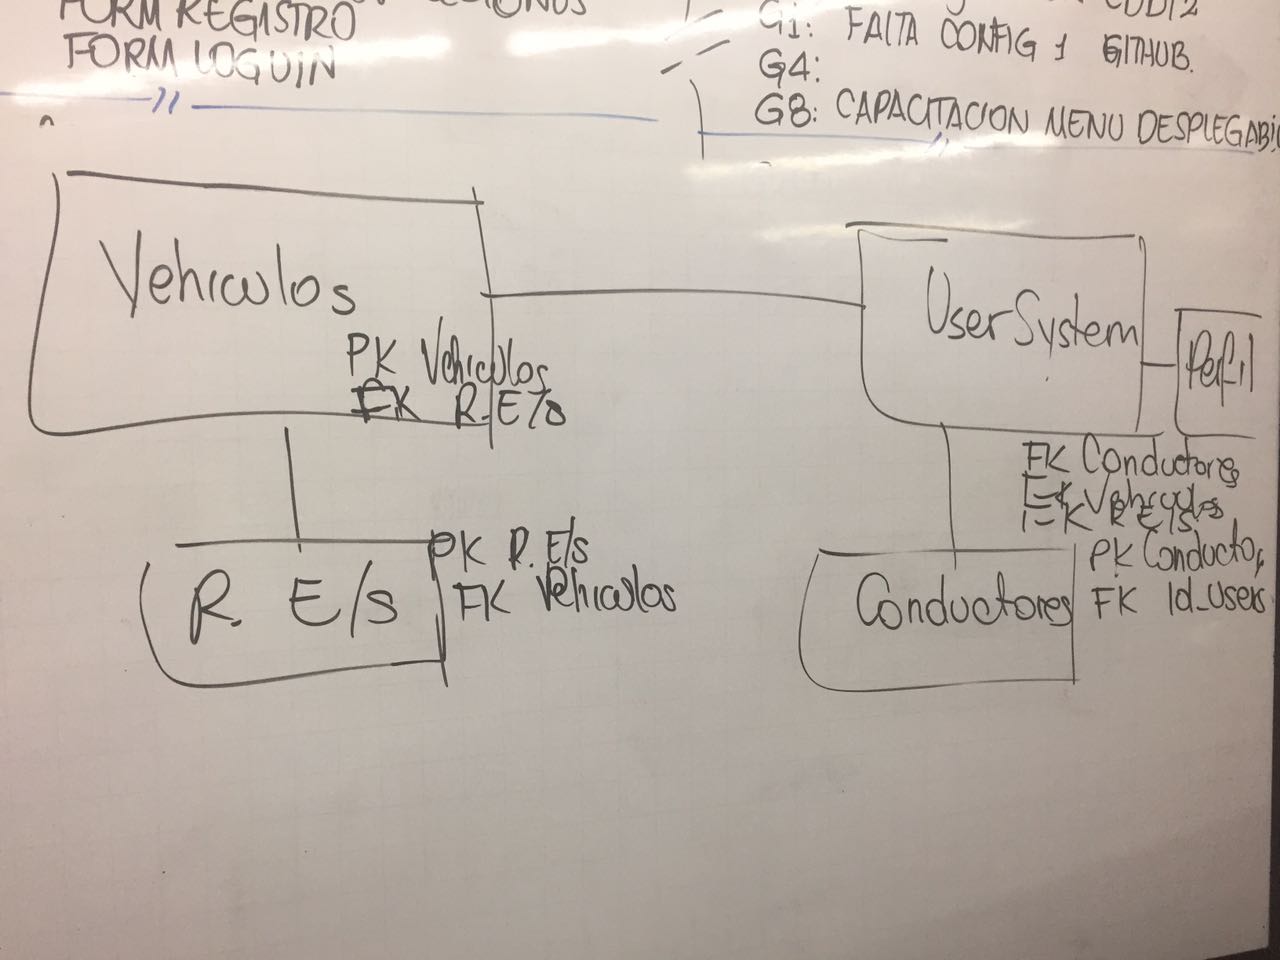 FORM REGISTRO
FORM LOGUIN
G1: FALTA CONFIG 1 GITHUB.
G4:
G8: CAPACITACION MENU DESPLEGABLE
Vehiculos
PK Vehiculos
FK R.E/s
UserSystem
Perfil
FK Conductores
FK Vehiculos
FK R E/s
R. E/s
PK R. E/s
FK Vehiculos
Conductores
PK Conductor
FK Id_Users